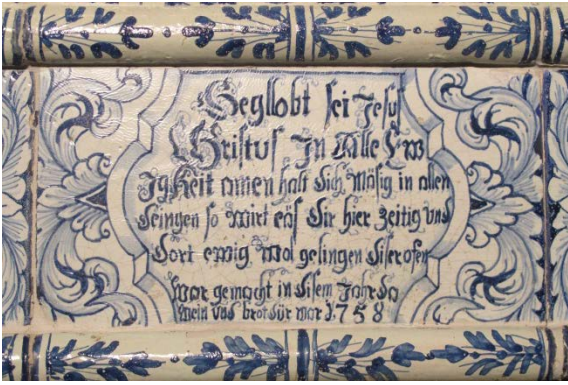 Gegllobt sei Jesus
Christus In Alle Ew
IgKeit amen halt dich Mäsig in allen
deingen so Wirt eäs dir hier zeitig vnd
dort ewig Wol gelingen diser ofen
war gemacht in disem Jahr da
Wein vnd brot dür war 1758